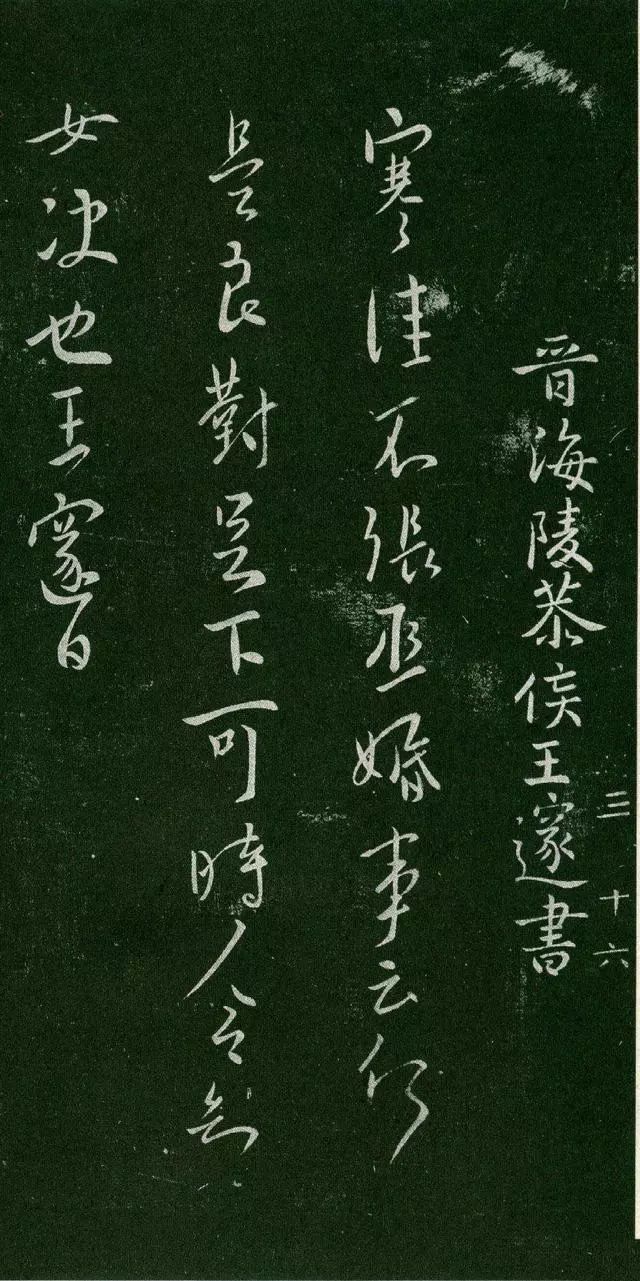 三 十六
晉海陵恭侯王邃書
寒佳不張丞婚事云何
是良對足下可時人令知
女決也王邃白